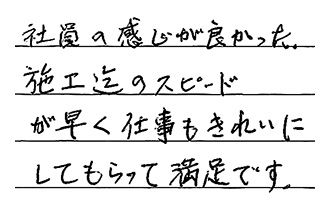 社員の感じが良かった。
施工迄のスピード
が早く仕事もきれいに
してもらって満足です。